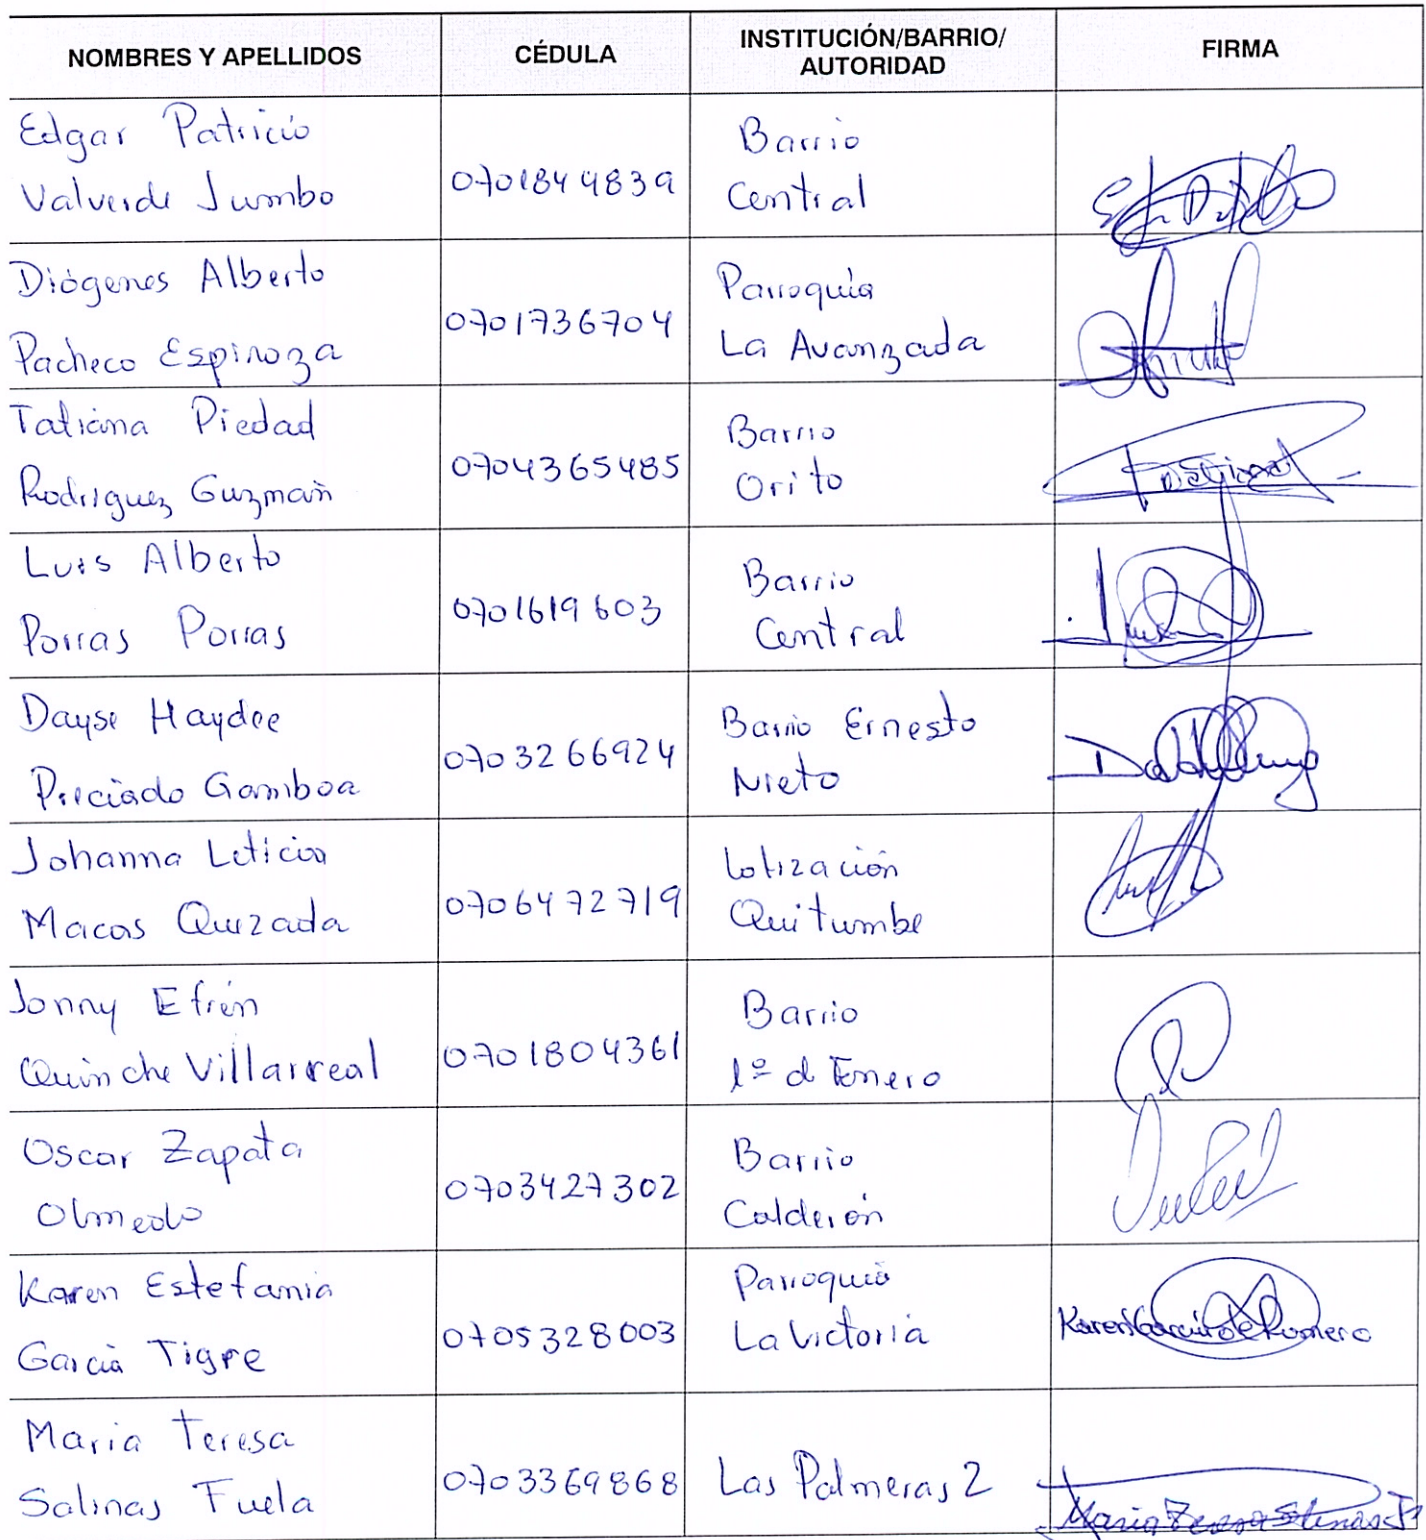 NOMBRES Y APELLIDOS
CÉDULA
INSTITUCIÓN/BARRIO/
AUTORIDAD
FIRMA
Edgar Patricio
Valverde Jumbo
0701844839
Barrio
Central
Diógenes Alberto
Pacheco Espinoza
0701736704
Parroquia
La Avanzada
Tatiana Piedad
Rodriguez Guzmán
0704365485
Barrio
Orito
Luis Alberto
Porras Porras
0701619603
Barrio
Central
Dayse Haydee
Preciado Gamboa
0703266924
Barrio Ernesto
Nieto
Johanna Leticia
Macas Quezada
0706472719
Lotización
Quitumbe
Jonny Efrén
Quinche Villarreal
0701804361
Barrio
1º d Enero
Oscar Zapata
Olmedo
0703427302
Barrio
Calderón
Karen Estefania
García Tigre
0705328003
Parroquia
La Victoria
Karen García de Romero
Maria Teresa
Salinas Fuela
0703369868
Las Palmeras 2
Maria Teresa Salinas F